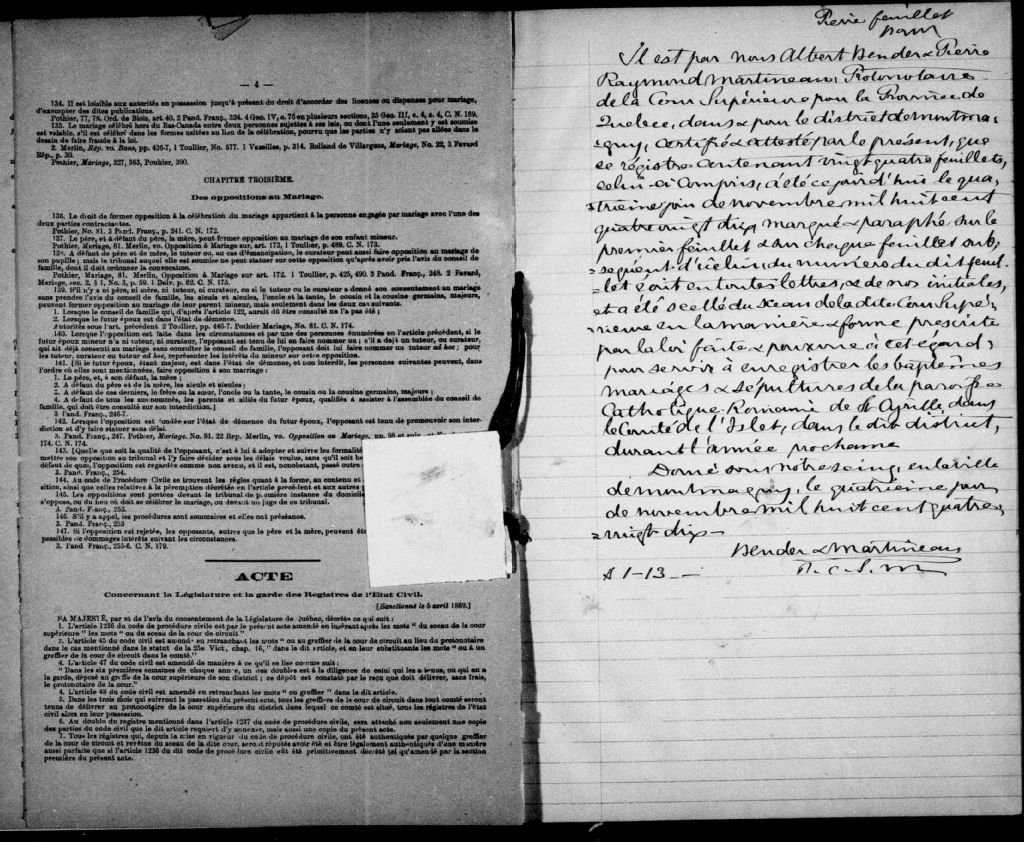 — 4 —
134. Il est loisible aux autorités en possession jusqu'à présent du droit d'accorder des licences ou dispenses pour mariage,
d'exempter des dites publications.
Pothier, 77, 78. Ord. de Blois, art. 40. 2 Pand. Franç., 324. 4 Geo. IV, c. 76 en plusieurs sections, 35 Geo. III, c. 4, s. 4, C. N. 169.
135. Le mariage célébré hors du Bas-Canada entre deux personnes sujettes à ses lois, ou dont l'une seulement y est soumise
est valable, s'il est célébré dans les formes usitées au lieu de la célébration, pourvu que les parties n'y soient pas allées dans le
dessein de faire fraude à la loi.
2. Merlin, Rép. vo. Bans, pp. 436-7, 1 Toullier, No. 577. 1 Vazeilles, p. 314. Rolland de Villargues, Mariage, No. 22, 3 Favard
Rép., p. 30.
Pothier, Mariage, 327, 363, Pouhier, 390.
CHAPITRE TROISIÈME.
Des oppositions au Mariage.
136. Le droit de former opposition à la célébration du mariage appartient à la personne engagée par mariage avec l'une des
deux parties contractantes.
Pothier, No. 81. 3 Pand. Franç., p. 241. C. N. 172.
137. Le père, et à défaut du père, la mère, peut former opposition au mariage de son enfant mineur.
Pothier, Mariage, 81. Merlin, vo. Opposition à Mariage sur art. 173, 1 Toullier, p. 489. C. N. 173.
138. A défaut de père et de mère, le tuteur ou, au cas d'émancipation, le curateur peut aussi faire opposition au mariage de
son pupille; mais le tribunal auquel elle est soumise ne peut statuer sur cette opposition qu'après avoir pris l'avis du conseil de
famille, dont il doit ordonner la convocation.
Pothier, Mariage, 81. Merlin, Opposition à Mariage sur art. 172. 1 Toullier, p. 425, 490. 3 Pand. Franç., 248. 2 Favard,
Mariage, sec. 2, § 1, No. 3, p. 59. 1 Delv. p. 62. C. N. 175.
139. S'il n'y a ni père, ni mère, ni tuteur, ni curateur, ou si le tuteur ou le curateur a donné son consentement au mariage
sans prendre l'avis du conseil de famille, les aïeuls et aïeules, l'oncle et la tante, le cousin et la cousine germains, majeurs,
peuvent former opposition au mariage de leur parent mineur, mais seulement dans les deux cas suivants.
1. Lorsque le conseil de famille qui, d'après l'article 122, aurait dû être consulté ne l'a pas été ;
2. Lorsque le futur époux est dans l'état de démence.
Autorités sous l'art. précédent 2 Toullier, pp. 446-7. Pothier Mariage, No. 81. C. N. 174.
140. Lorsque l'opposition est faite dans les circonstances et par une des personnes énumérées en l'article précédent, si le
futur époux mineur n'a ni tuteur, ni curateur, l'opposant est tenu de lui en faire nommer un ; s'il a déjà un tuteur, ou curateur,
qui ait déjà consenti au mariage sans consulter le conseil de famille, l'opposant doit lui faire nommer un tuteur ad hoc ; pour
les tuteur, curateur ou tuteur ad hoc, représenter les intérêts du mineur sur cette opposition.
141. [Si le futur époux, étant majeur, est dans l'état de démence, et non interdit, les personnes suivantes peuvent, dans
l'ordre où elles sont mentionnées, faire opposition à son mariage :
1. Le père, et, à son défaut, la mère ;
2. A défaut du père et de la mère, les aïeuls et aïeules ;
3. A défaut de ces derniers, le frère ou la sœur, l'oncle ou la tante, le cousin ou la cousine germains, majeurs ;
4. A défaut de tous les sus-nommés, les parents et alliés du futur époux, qualifiés à assister à l'assemblée du conseil de
famille, qui doit être consulté sur son interdiction.]
3 Pand. Franç., 246-7.
142. Lorsque l'opposition est fondée sur l'état de démence du futur époux, l'opposant est tenu de promouvoir son inter-
diction et d'y faire statuer sans délai.
3. Pand. Franç., 247. Pothier, Mariage, No. 81. 22 Rep. Merlin, vo. Opposition au Mariage, pp. 98 et
174. C. N. 174.
143. [Quelque soit la qualité de l'opposant, c'est à lui à adopter et suivre les formalité
mettre son opposition au tribunal et l'y faire décider sous les délais voulus, sans qu'il soit be
défaut de quoi, l'opposition est regardée comme non avenu, et il est, nonobstant, passé outre
3. Pand. Franç., 254.
144. Au code de Procédure Civile se trouvent les règles quant à la forme, au contenu et
sition, ainsi que celles relatives à la péremption décrétée en l'article précédent et aux autres
145. Les oppositions sont portées devant le tribunal de première instance du domicile
s'oppose, ou du lieu où doit se célébrer le mariage, ou devant un juge de ce tribunal.
3. Pand. Franç., 253.
146. S'il y a appel, les procédures sont sommaires et elles ont préséance.
3. Pand. Franç., 253
147. Si l'opposition est rejetée, les opposants, autres que le père et la mère, peuvent êt
passibles de dommages intérêts suivant les circonstances.
3. Pand. Franç., 255-6. C. N. 179.
ACTE
Concernant la Législature et la garde des Registres de l'Etat Civil.
[Sanctionné le 5 avril 1869.]
SA MAJESTÉ, par et de l'avis du consentement de la Législature de Québec, décrète ce qui suit :
1. L'article 1236 du code de procédure civile est par le présent acte amendé en insérant après les mots " du sceau de la cour
supérieure " les mots " ou du sceau de la cour de circuit "
2. L'article 45 du code civil est amendé en retranchant les mots " ou au greffier de la cour de circuit au lieu du protonotaire
dans le cas mentionné dans le statut de la 25e Vict, chap. 16, " dans le dit article, et en leur substituant les mots " ou à un
greffier de la cour de circuit dans le comté."
4. L'article 47 du code civil est amendé de manière à ce qu'il se lise comme suit :
" Dans les six premières semaines de chaque année, un des doubles est à la diligence de celui qui les a tenus, ou qui en a
la garde, déposé au greffe de la cour supérieure de son district ; ce dépôt est constaté par le reçu que doit délivrer, sans frais,
le protonotaire de la cour."
4. L'article 48 du code civil est amendé en retranchant les mots " ou greffier " dans le dit article.
5. Dans les trois mois qui suivront la passation du présent acte, tous les greffiers de la cour de circuit dans tout comté seront
tenus de délivrer au protonotaire de la cour supérieure du district dans lequel ce comté est situé, tous les régistres de l'état
civil alors en leur possession.
6. Au double du registre mentionné dans l'article 1237 du code de procédure civile, sera attaché non seulement une copie
des parties du code civil que le dit article requiert d'y annexer, mais aussi une copie du présent acte.
7. Tous les registres qui, depuis la mise en vigueur du code de procédure civile, ont été authentiqués par quelque greffier
de la cour de circuit et revêtus du sceau de la dite cour, seront réputés avoir été et être légalement authentiqués d'une manière
aussi parfaite que si l'article 1236 du dit code de procédure civile eût été primitivement décrété tel qu'amendé par la section
première du présent acte.
feuillet
Il est par nous Albert Bender & Pierre
Raymond Martineau, Protonotaire
de la Cour Supérieure pour la Province de
Québec, dans & pour le district de Montma-
=gny, certifié & attesté par le présent, que
ce régistre contenant vingt quatre feuillets,
celui-ci compris, a été ce jour d'hui le qua-
=trième jour de novembre mil huit cent
quatre vingt dix, marqué & paraphé sur le
premier feuillet & sur chaque feuillet sub-
=séquent d'icelui, du numéro du dit feuil-
=let écrit en toutes lettres, & de nos initiales,
et a été scellé du Sceau de la dite Cour Supé-
=rieure en la manière & forme prescrite
par la loi faite & pourvue à cet égard,
pour servir à enregistrer les baptêmes
mariages & sépultures de la paroisse
Catholique Romaine de St Cyrille, dans
le Comté de l'Islet, dans le dit district,
durant l'année prochaine
Donné sous notre seing, en la ville
de Montmagny, le quatrième jour
de novembre mil huit cent quatre,
=vingt dix—
Bender & Martineau
$ 1-13 — P. C. S. M